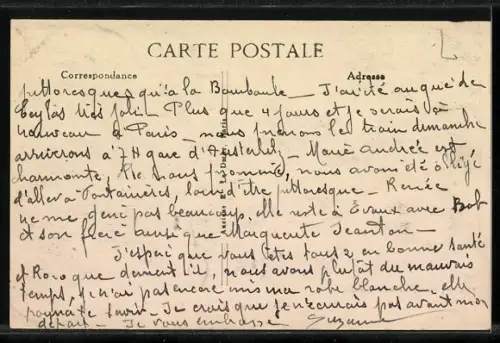 CARTE POSTALE
Correspondance
Adresse
pittoresques qu'à la Bombaule — J'ai été au gué de
très joli — Plus que 4 jours et je serais à
nouveau à Paris — nous prenons le train dimanche
arriverons à 7H gare d'Austerlitz — Marie Andrée est
charmante, nous nous, nous avons été obligé
d'aller à Fontanières, loin d'être pittoresque — Renée
ne me pas beaucoup, elle reste à Évaux avec Bob
et son frère ainsi que Marguerite Jeanton —
J'espère que vous êtes tous 2 en bonne santé
et Roro que devient il, nous avons plutôt du mauvais
temps, je n'ai pas encore mis ma robe blanche, elle
pourra te servir — Je crois que je n'écrirais pas avant mon
départ — Je vous embrasse Suzanne